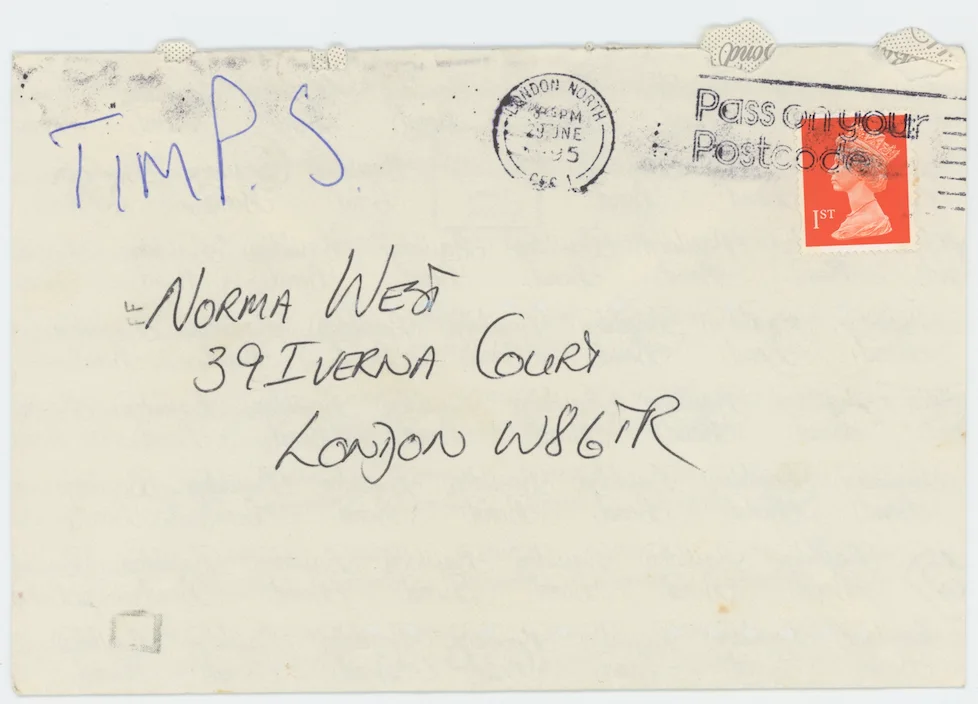 TIM P. S.
LONDON NORTH
PM
29 JNE
95
Pass on your
Postcode
1ST
NORMA WEST
39 IVERNA COURT
LONDON W8 6TR